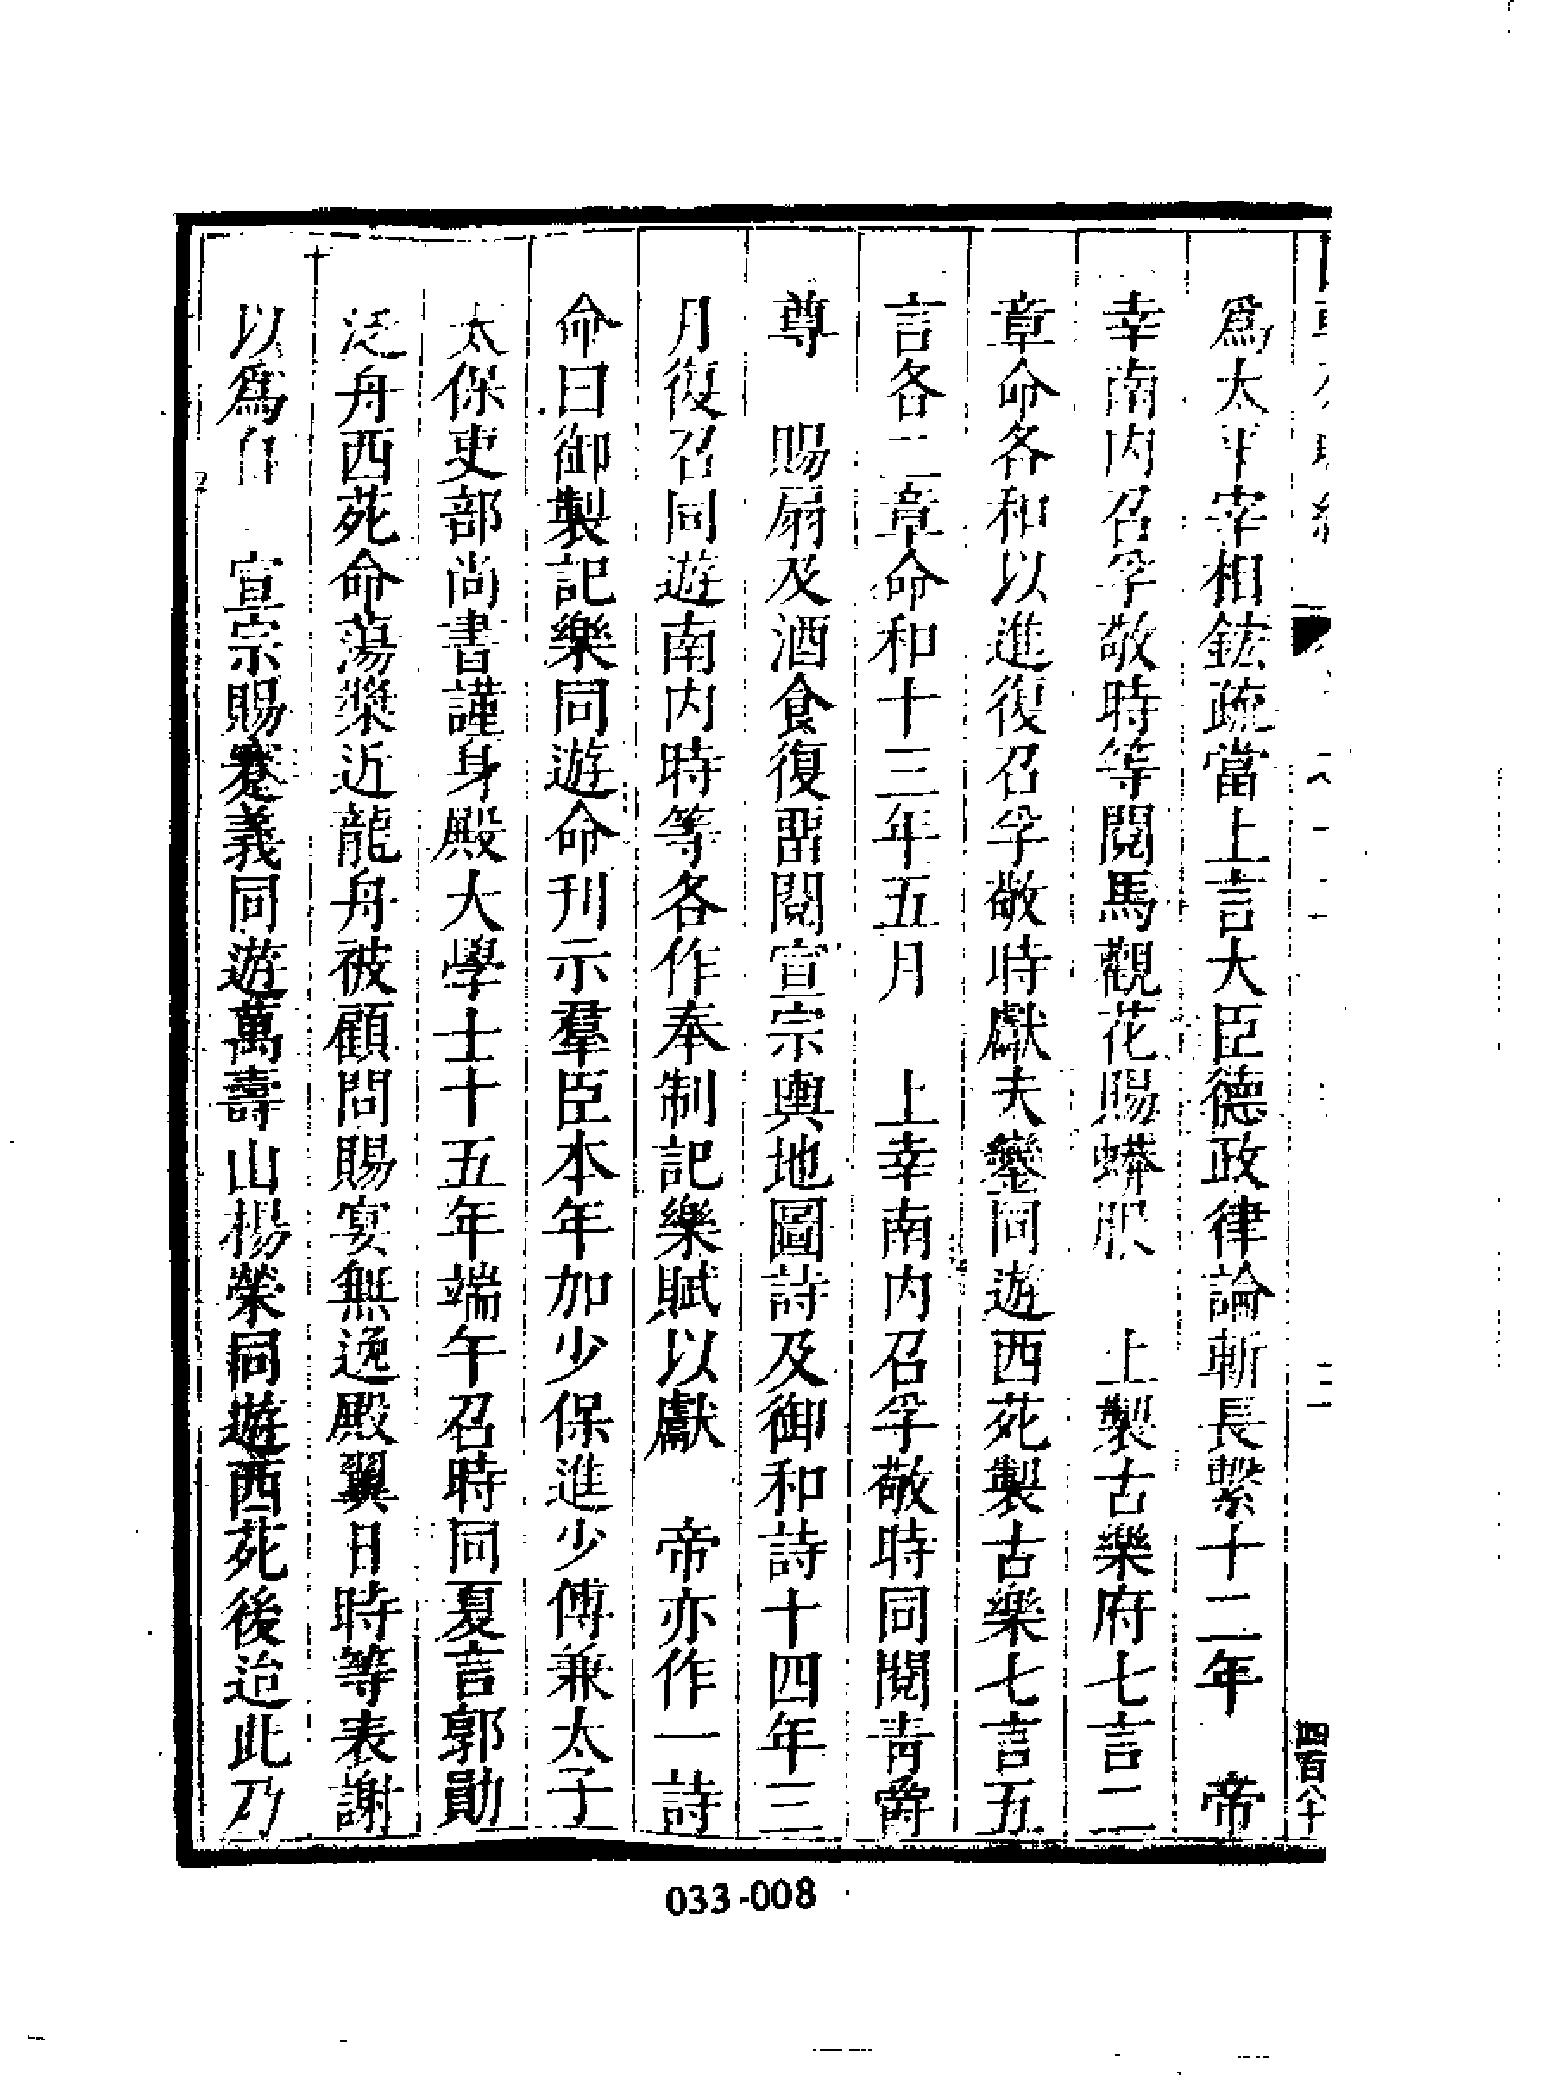 爲太平宰相鋐疏當上言大臣德政律論斬長繫十二年　帝
幸南內召孚敬時等閱馬觀花賜蟒服　上製古樂府七言二
章命各和以進復召孚敬時獻夫鑾同遊西苑製古樂七言五
言各二章命和十三年五月　上幸南內召孚敬時同閱靑爵
尊　賜扇及酒食復閱宣宗輿地圖詩及御和詩十四年三
月復召同遊南內時等各作奉制記樂賦以獻　帝亦作一詩
命曰御製記樂同遊命刊示羣臣本年加少保進少傅兼太子
太保吏部尚書謹身殿大學士十五年端午召時同夏言郭勛
泛舟西苑命蕩槳近龍舟被顧問賜宴無逸殿翼日時等表謝
以爲自　宣宗賜蹇義同遊萬壽山楊榮同遊西苑後迨此乃
四百八十
033-008